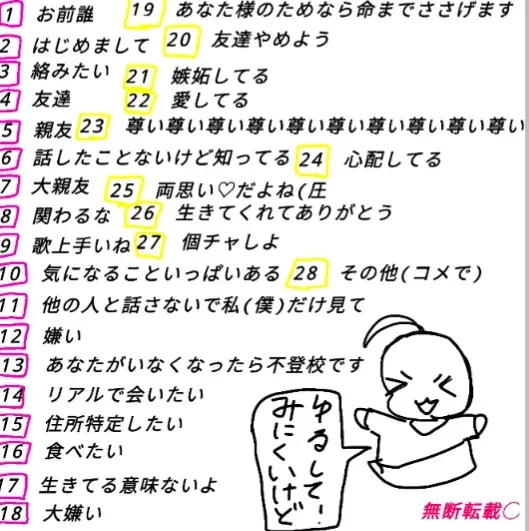 1 お前誰
2 はじめまして
3 絡みたい
4 友達
5 親友
6 話したことないけど知ってる
7 大親友
8 関わるな
9 歌上手いね
10 気になることいっぱいある
11 他の人と話さないで私(僕)だけ見て
12 嫌い
13 あなたがいなくなったら不登校です
14 リアルで会いたい
15 住所特定したい
16 食べたい
17 生きてる意味ないよ
18 大嫌い
19 あなた様のためなら命までささげます
20 友達やめよう
21 嫉妬してる
22 愛してる
23 尊い尊い尊い尊い尊い尊い尊い尊い尊い尊い
24 心配してる
25 両思い♡だよね(圧
26 生きてくれてありがとう
27 個チャしよ
28 その他(コメで)
みにくいけど
ゆるしてー
無断転載◯